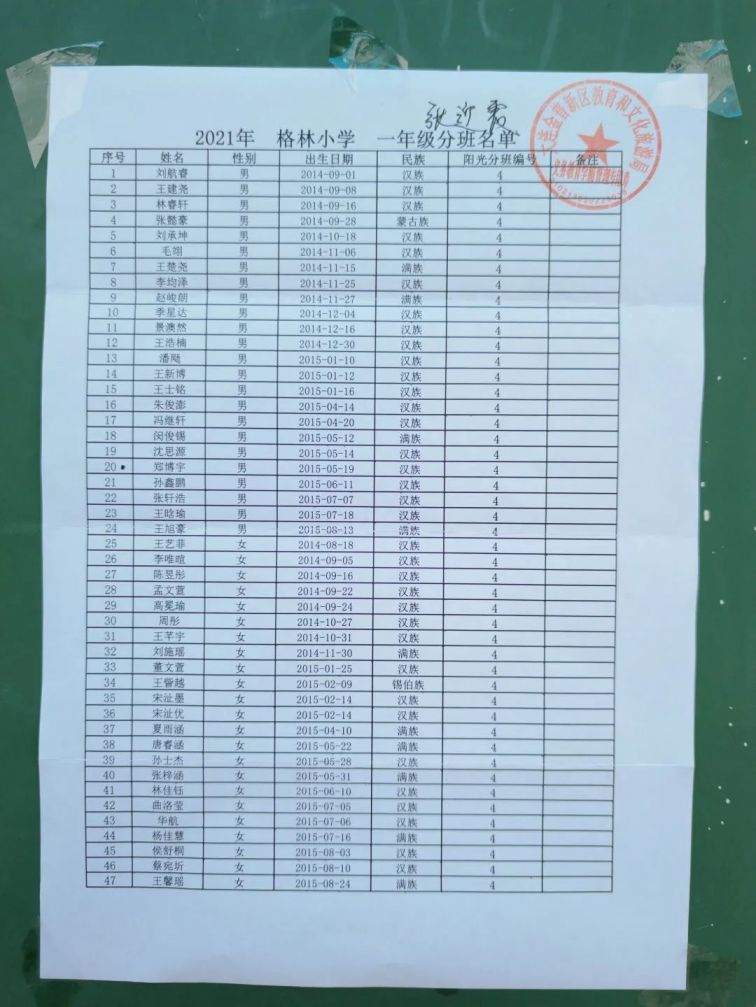 张迎霞
2021年 格林小学 一年级分班名单
序号 姓名 性别 出生日期 民族 阳光分班编号 备注
1 刘航睿 男 2014-09-01 汉族 4
2 王建尧 男 2014-09-08 汉族 4
3 林睿轩 男 2014-09-16 汉族 4
4 张懿豪 男 2014-09-28 蒙古族 4
5 刘承坤 男 2014-10-18 汉族 4
6 毛翊 男 2014-11-06 汉族 4
7 王楚尧 男 2014-11-15 满族 4
8 李均泽 男 2014-11-25 汉族 4
9 赵峻朗 男 2014-11-27 满族 4
10 季星达 男 2014-12-04 汉族 4
11 景澳然 男 2014-12-16 汉族 4
12 王浩楠 男 2014-12-30 汉族 4
13 潘飏 男 2015-01-10 汉族 4
14 王新博 男 2015-01-12 汉族 4
15 王士铭 男 2015-01-16 汉族 4
16 朱俊澎 男 2015-04-14 汉族 4
17 冯继轩 男 2015-04-20 汉族 4
18 闵俊锡 男 2015-05-12 满族 4
19 沈思源 男 2015-05-14 汉族 4
20 郑博宇 男 2015-05-19 汉族 4
21 孙鑫鹏 男 2015-06-11 汉族 4
22 张轩浩 男 2015-07-07 汉族 4
23 王晗瑜 男 2015-07-18 汉族 4
24 王旭豪 男 2015-08-13 满族 4
25 王艺菲 女 2014-08-18 汉族 4
26 李唯暄 女 2014-09-05 汉族 4
27 陈昱彤 女 2014-09-16 汉族 4
28 孟文萱 女 2014-09-22 汉族 4
29 高冕瑜 女 2014-09-24 汉族 4
30 周彤 女 2014-10-27 汉族 4
31 王芊宇 女 2014-10-31 汉族 4
32 刘施瑶 女 2014-11-30 满族 4
33 董文萱 女 2015-01-25 汉族 4
34 王誉越 女 2015-02-09 锡伯族 4
35 宋沚墨 女 2015-02-14 汉族 4
36 宋沚优 女 2015-02-14 汉族 4
37 夏雨涵 女 2015-04-10 满族 4
38 唐睿涵 女 2015-05-22 满族 4
39 孙士杰 女 2015-05-28 汉族 4
40 张梓涵 女 2015-05-31 满族 4
41 林佳钰 女 2015-06-10 汉族 4
42 曲洛莹 女 2015-07-05 汉族 4
43 华航 女 2015-07-06 汉族 4
44 杨佳慧 女 2015-07-16 满族 4
45 侯舒桐 女 2015-08-03 汉族 4
46 蔡宛圻 女 2015-08-10 汉族 4
47 王馨瑶 女 2015-08-24 满族 4